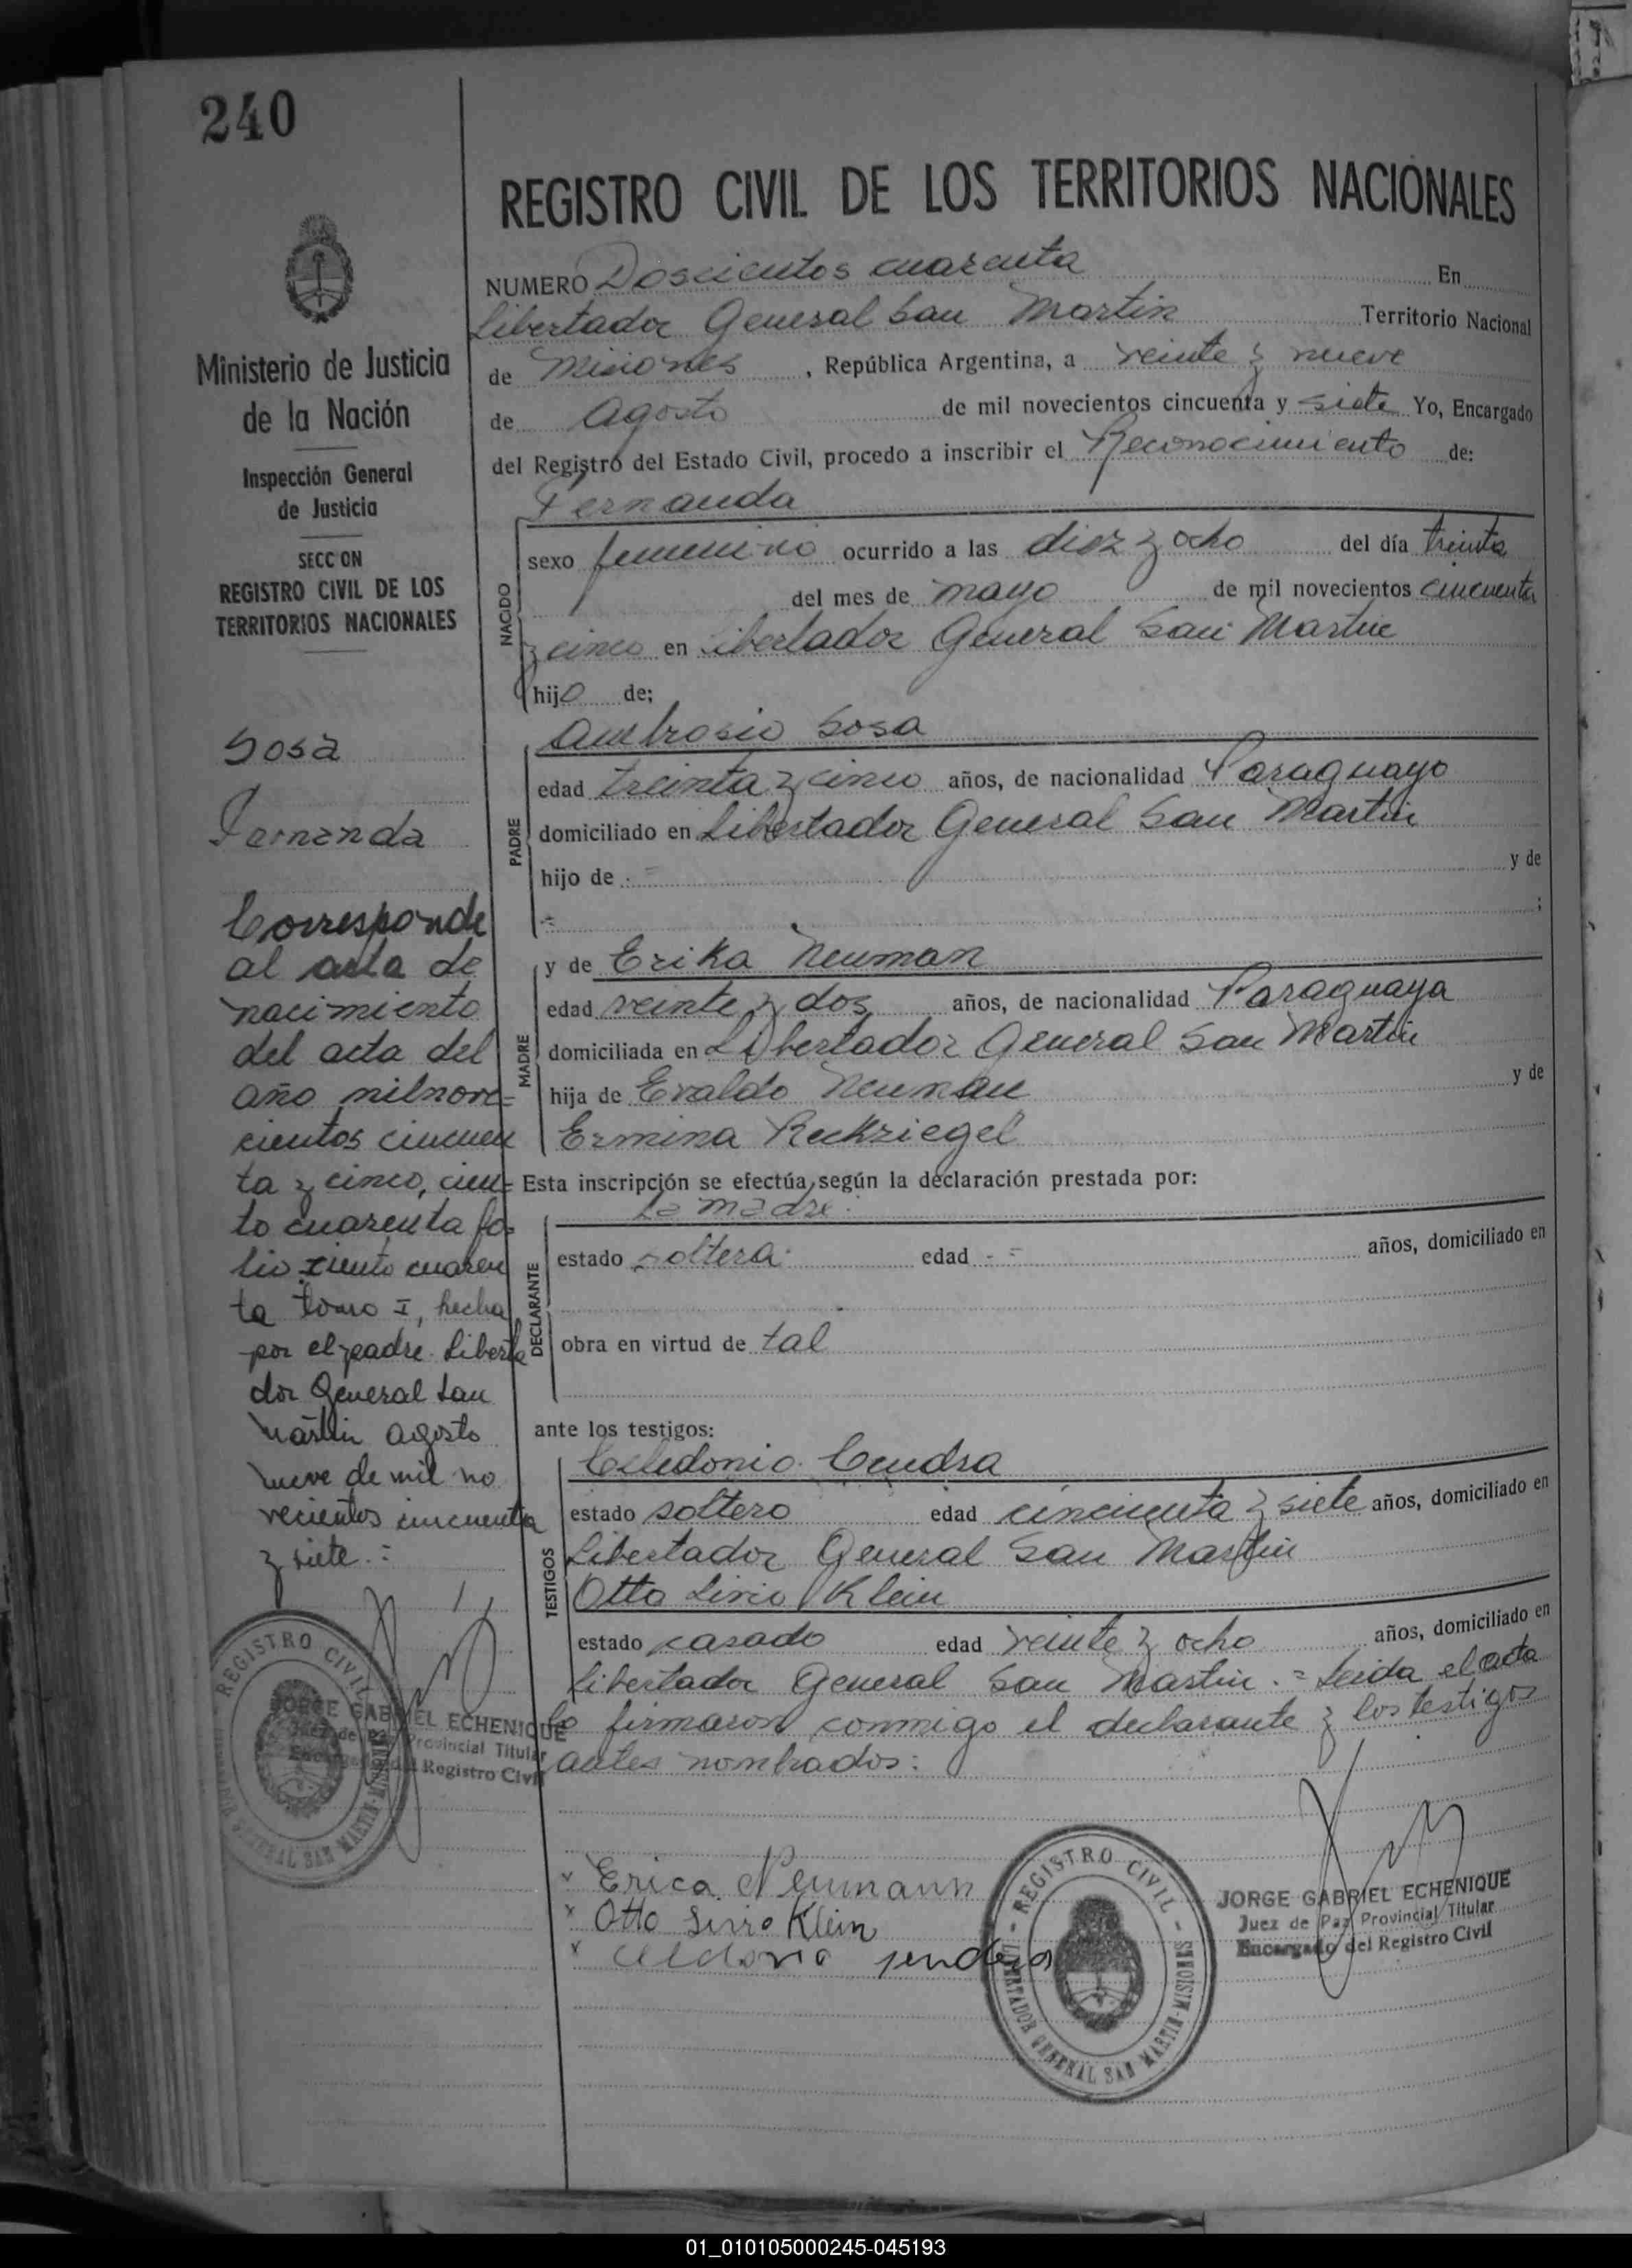 240
REGISTRO CIVIL DE LOS TERRITORIOS NACIONALES
Ministerio de Justicia
de la Nación
Inspección General
de Justicia
SECC ON
REGISTRO CIVIL DE LOS
TERRITORIOS NACIONALES
NUMERO Doscientos cuarenta En
Libertador General San Martin Territorio Nacional
de Misiones, República Argentina, a veinte y nueve
de Agosto de mil novecientos cincuenta y siete Yo, Encargado
del Registro del Estado Civil, procedo a inscribir el Reconocimiento de:
Fernanda
NACIDO
sexo femenino ocurrido a las diez y ocho del día treinta
del mes de mayo de mil novecientos cincuenta
y cinco en Libertador General San Martin
hijo de;
Ambrosio Sosa
PADRE
edad treinta y cinco años, de nacionalidad Paraguayo
domiciliado en Libertador General San Martin
hijo de - y de
= ;
y de Erika Neuman
MADRE
edad veinte y dos años, de nacionalidad Paraguaya
domiciliada en Libertador General San Martin
hija de Evaldo Neuman y de
Ermina Reckziegel
Esta inscripción se efectúa según la declaración prestada por:
La madre.
DECLARANTE
estado soltera. edad - = años, domiciliado en
obra en virtud de tal
ante los testigos:
Celedonio Cendra
TESTIGOS
estado soltero edad cincuenta y siete años, domiciliado en
Libertador General San Martin
Otto Livio Klein
estado casado edad veinte y ocho años, domiciliado en
Libertador General San Martin. = Leida el acta
la firmaron conmigo el declarante y los testigos
antes nombrados:
Sosa
Fernanda
Corresponde
al acta de
nacimiento
del acta del
año milnove=
cientos cincuen
ta y cinco, cien=
to cuarenta fo
lio ciento cuaren
ta tomo I, hecha
por el padre. Liberta
dor General San
Martin agosto
nueve de mil no
vecientos cincuenta
y siete.=
REGISTRO CIVIL
LIBERTADOR GENERAL SAN MARTIN-MISIONES
JORGE GABRIEL ECHENIQUE
Juez de Paz Provincial Titular
Encargado del Registro Civil
Erica Neumann
Otto Livio Klein
REGISTRO CIVIL
LIBERTADOR GENERAL SAN MARTIN-MISIONES
JORGE GABRIEL ECHENIQUE
Juez de Paz Provincial Titular
Encargado del Registro Civil
01_010105000245-045193